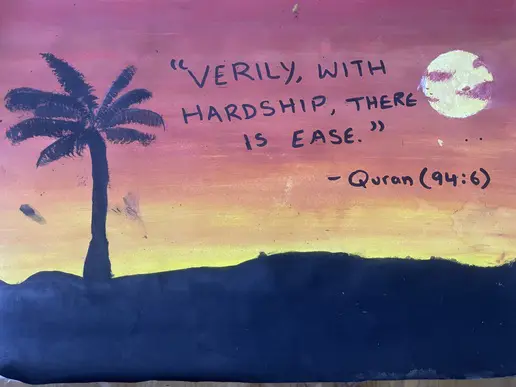 “VERILY, WITH
HARDSHIP, THERE
IS EASE.”
- Quran (94:6)